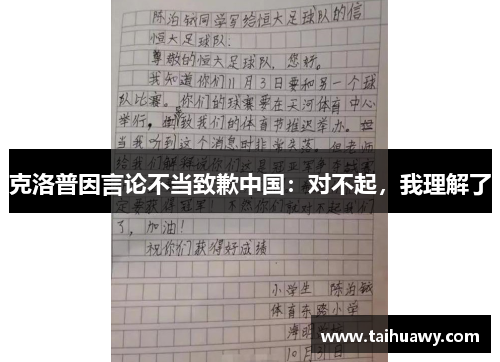 陈泊铖同学写给恒大足球队的信
恒大足球队:
尊敬的恒大足球队,您好。
我知道你们11月3日要和另一个球
队比赛。你们的球赛要在天河体育中心
举行,导致我们的体育节推迟举办。但
当我听到这个消息时非常失落。但老师
克洛普因言论不当致歉中国:对不起,我理解了
定要获得冠军!不然你们就对不起我们
了,加油!
祝你们获得好成绩
小学生 陈泊铖
体育东路小学
海明
10月31日
www.taihuawy.com